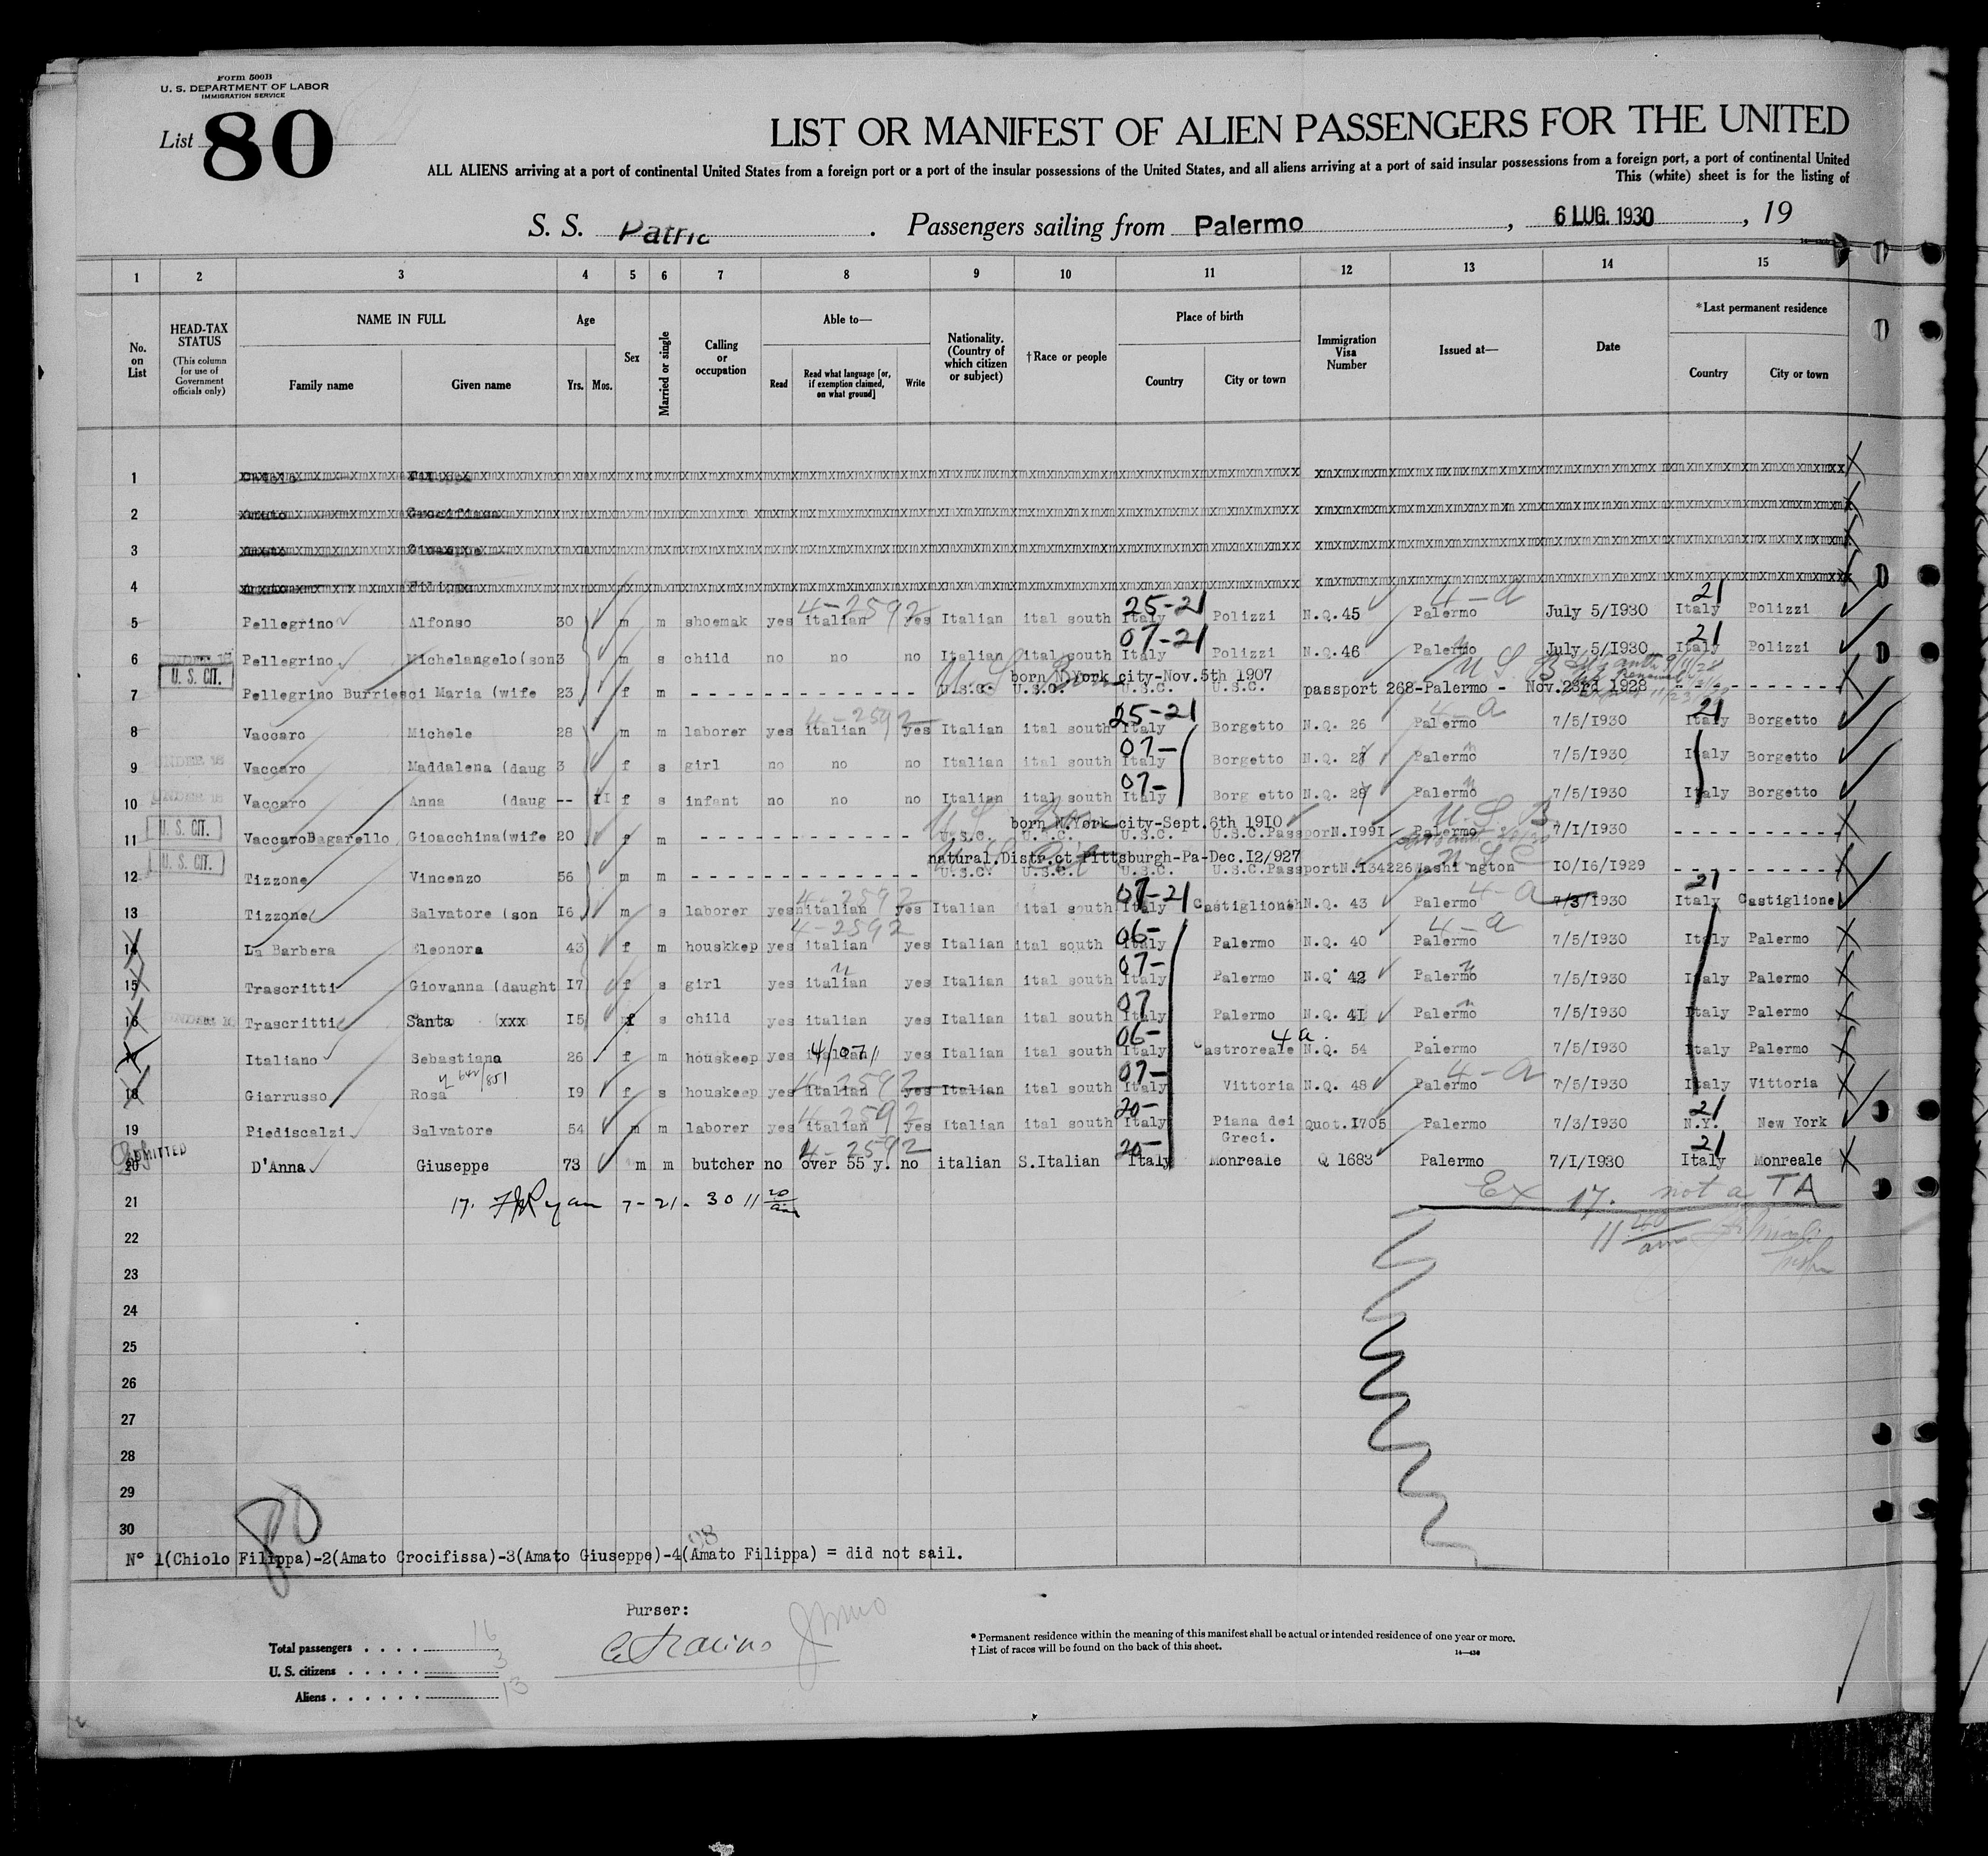 Form 500B
U. S. DEPARTMENT OF LABOR
IMMIGRATION SERVICE
List 80
LIST OR MANIFEST OF ALIEN PASSENGERS FOR THE UNITED
ALL ALIENS arriving at a port of continental United States from a foreign port or a port of the insular possessions of the United States, and all aliens arriving at a port of said insular possessions from a foreign port, a port of continental United
This (white) sheet is for the listing of
S. S. Patria . Passengers sailing from Palermo , 6 LUG. 1930 , 19
1 2 3 4 5 6 7 8 9 10 11 12 13 14 15
No. on List
HEAD-TAX STATUS (This column for use of Government officials only)
NAME IN FULL
Family name
Given name
Age
Yrs. Mos.
Sex
Married or single
Calling or occupation
Able to—
Read
Read what language [or, if exemption claimed, on what ground]
Write
Nationality. (Country of which citizen or subject)
†Race or people
Place of birth
Country
City or town
Immigration Visa Number
Issued at—
Date
*Last permanent residence
Country
City or town
1
2 Amato Crocifissa
3 Amato Giuseppe
4 Amato Filippa
4-2592 25-21 4-a 21
5 Pellegrino Alfonso 30 m m shoemak yes italian yes Italian ital south Italy Polizzi N.Q. 45 Palermo July 5/1930 Italy Polizzi
07-21 21
6 UNDER 16 Pellegrino Michelangelo (son 3 m s child no no no Italian ital south Italy Polizzi N.Q. 46 Palermo July 5/1930 Italy Polizzi
U. S. CIT. born N.York city-Nov.5th 1907 U S B
7 Pellegrino Burriesci Maria (wife 23 f m - - - U.S.C. U.S.C. U.S.C. U.S.C. passport 268-Palermo - Nov.23rd 1928 - - -
4-2592 25-21 4-a 21
8 Vaccaro Michele 28 m m laborer yes italian yes Italian ital south Italy Borgetto N.Q. 26 Palermo 7/5/1930 Italy Borgetto
07-
9 UNDER 16 Vaccaro Maddalena (daug 3 f s girl no no no Italian ital south Italy Borgetto N.Q. Palermo 7/5/1930 Italy Borgetto
07-
10 UNDER 16 Vaccaro Anna (daug -- II f s infant no no no Italian ital south Italy Borg etto N.Q. Palermo 7/5/1930 Italy Borgetto
U. S. CIT. born N.York city-Sept.6th 1910 U. S. B.
11 VaccaroBagarello Gioacchina(wife 20 f m - - - U.S.C. U.S.C. U.S.C. U.S.C.PassporN.1991 Palermo 7/1/1930 - - -
U. S. CIT. natural.Distr.ct Pittsburgh-Pa-Dec.12/927
12 Tizzone Vincenzo 56 m m - - - U.S.C. U.S.C. U.S.C. U.S.C.PassportN.134226Washington 10/16/1929 - - -
4-2592 07-21 4-a 21
13 Tizzone Salvatore (son 16 m s laborer yes italian yes Italian ital south Italy Castiglione N.Q. 43 Palermo 7/3/1930 Italy Castiglione
4-2592 06- 4-a
14 La Barbera Eleonora 43 f m houskkep yes italian yes Italian ital south Italy Palermo N.Q. 40 Palermo 7/5/1930 Italy Palermo
07-
15 Trascritti Giovanna (daught 17 f s girl yes italian yes Italian ital south Italy Palermo N.Q. 42 Palermo 7/5/1930 Italy Palermo
07
16 UNDER 16 Trascritti Santa (xxx 15 f s child yes italian yes Italian ital south Italy Palermo N.Q. 41 Palermo 7/5/1930 Italy Palermo
06- 4a
17 Italiano Sebastiana 26 f m houskeep yes italian yes Italian ital south Italy Castroreale N.Q. 54 Palermo 7/5/1930 Italy Palermo
4-2592 07- 4-a
18 Giarrusso Rosa 19 f s houskeep yes italian yes Italian ital south Italy Vittoria N.Q. 48 Palermo 7/5/1930 Italy Vittoria
4-2592 20- 21
19 Piediscalzi Salvatore 54 m m laborer yes italian yes Italian ital south Italy Piana dei Greci. Quot.1705 Palermo 7/3/1930 N.Y. New York
ADMITTED 4-2592 20- 21
20 D'Anna Giuseppe 73 m m butcher no over 55 y. no italian S.Italian Italy Monreale Q 1683 Palermo 7/1/1930 Italy Monreale
21 17. Ryan 7-21.30 11 20 am Ex 17. not a TA
22 11 40 am
23
24
25
26
27
28
29
30
80
N° 1(Chiolo Filippa)-2(Amato Crocifissa)-3(Amato Giuseppe)-4(Amato Filippa) = did not sail.
Purser:
Total passengers . . . . 16
U. S. citizens . . . . . 3
Aliens . . . . . . 13
* Permanent residence within the meaning of this manifest shall be actual or intended residence of one year or more.
† List of races will be found on the back of this sheet.